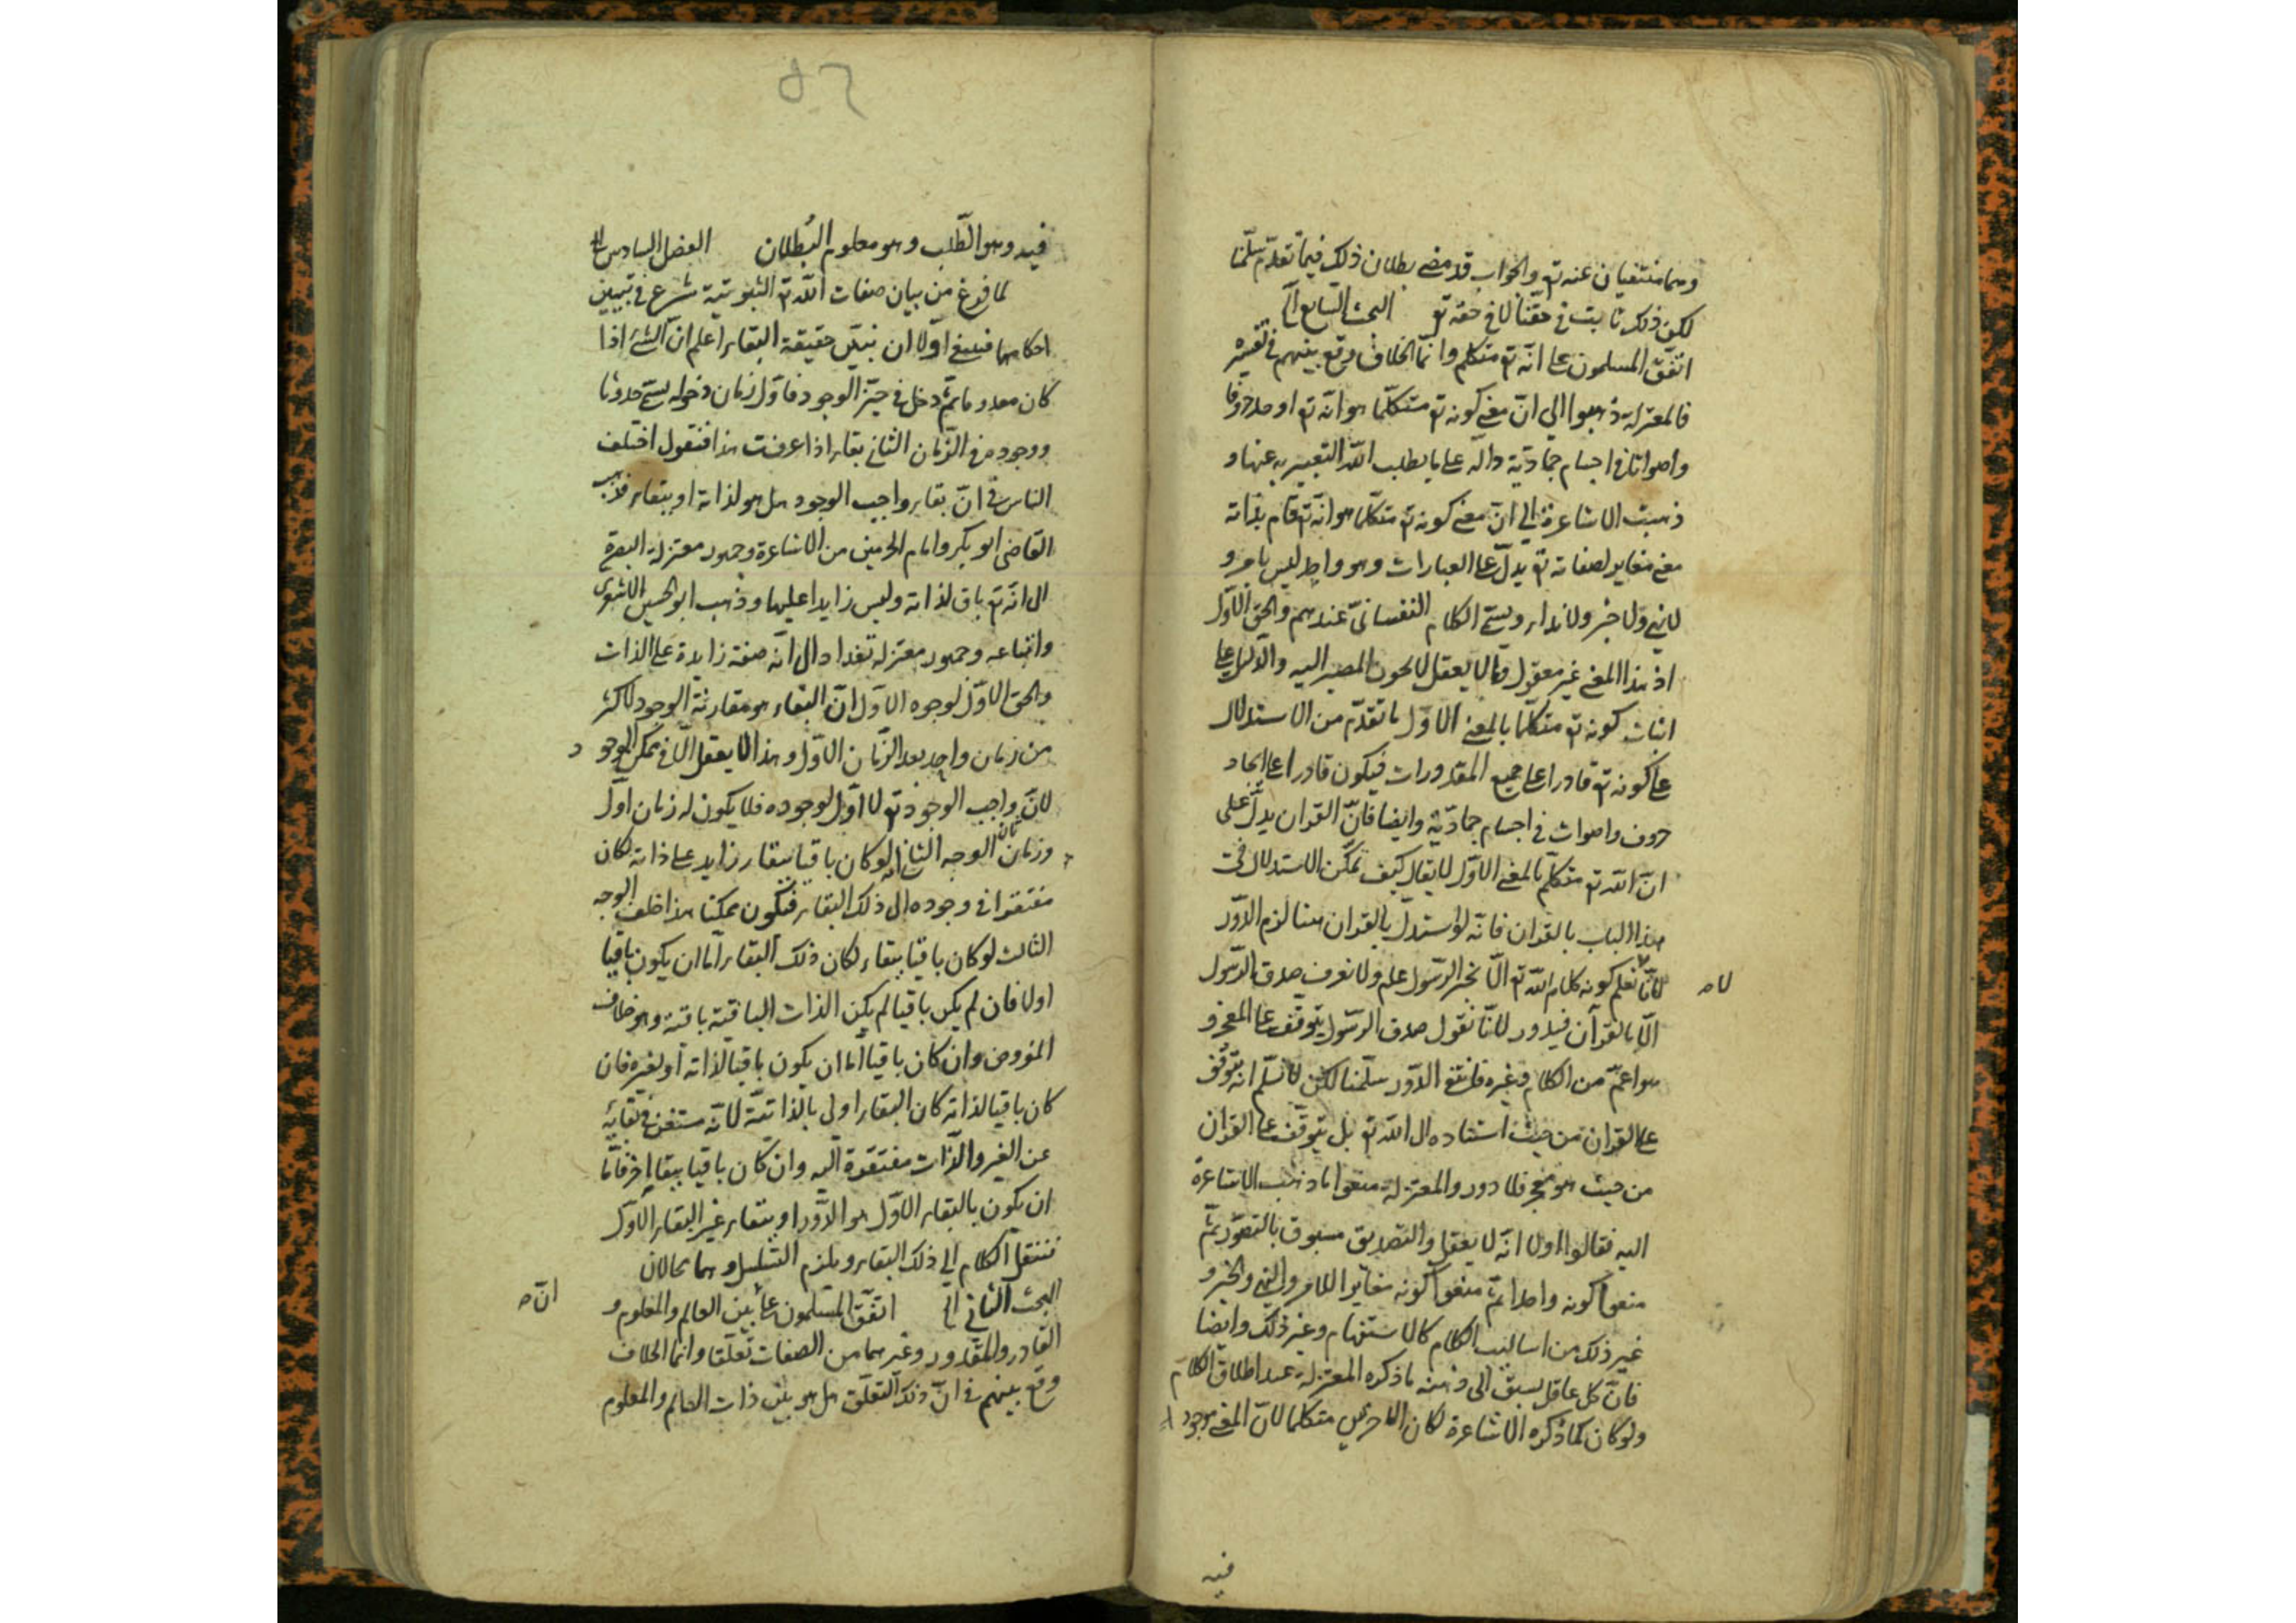 وهما منتفيان عنه تع والجواب قد مضى بطلان ذلك فيما تقدّم سلّمنا
لكن ذلك ثابت في حقّنا لا في حقه تع البحث السابع الخ
اتفق المسلمون على انّه تع متكلم وانّما الخلاف وقع بينهم في تفسيره
فالمعتزلة ذهبوا الى انّ معنى كونه تع متكلّما هو انّه تع اوجد حروفا
واصواتا في اجسام جماديّة دالّة على ما يطلب الله التعبير به عنها و
ذهبت الاشاعرة الى انّ معنى كونه تع متكلّما هو انّه تع قام بذاته
معنى مغاير لصفاته تع يدلّ على العبارات وهو واحد ليس بامر و
لا نهى ولا خبر ولا نداء ويسمّى الكلام النفسانىّ عندهم والحق الاوّل
اذ هذا المعنى غير معقول وما لا يعقل لا يجوز المصير اليه والدليل على
اثبات كونه تع متكلّما بالمعنى الاوّل ما تقدّم من الاستدلال
على كونه تع قادرا على جميع المقدورات فيكون قادرا على ايجاد
حروف واصوات في اجسام جماديّة وايضا فانّ القران يدلّ على
انّ الله تع متكلّم بالمعنى الاوّل لا يقال كيف يمكن الاستدلال في
هذا الباب بالقران فانّه لو استدلّ بالقران هنا لزم الدّور
لانّا لا نعلم كونه كلام الله تع الّا بخبر الرّسول علم ولا نعرف صدق الرّسول لا ص
الّا بالقرآن فيدور لانّا نقول صدق الرّسول يتوقّف على المعجز و
هو اعمّ من الكلام وغيره فانتفى الدّور سلّمنا لكن لا نسلّم انه يتوقّف
على القران من حيث استناده الى الله تع بل يتوقّف على القران
من حيث هو معجز فلا دور والمعتزلة منعوا ما ذهب الاشاعرة
اليه فقالوا اولا انّه لا يعقل والتصديق مسبوق بالتصوّر ثمّ
منعوا كونه واحدا ثمّ منعوا كونه مغايرا للامر والنهى والخبر و
غير ذلك من اساليب الكلام كالاستفهام وغير ذلك وايضا
فانّ كل عاقل يسبق الى ذهنه ما ذكره المعتزلة عند اطلاق الكلام
ولو كان كما ذكره الاشاعرة لكان الاخرس متكلما لانّ المعنى موجود
فيه
فيه وهو الطّلب وهو معلوم البُطلان الفصل السادس الخ
لما فرغ من بيان صفات الله تع الثبوتيّة شرع في تبيين
احكامها فينبغي اوّلا ان نبيّن حقيقة البقاء اعلم انّ الشئ اذا
كان معدوما ثمّ دخل في حيّز الوجود فاوّل زمان دخوله يسمّى حدوثا
ووجوده في الزّمان الثاني بقاء اذا عرفت هذا فنقول اختلف
الناس في انّ بقاء واجب الوجود هل هو لذاته او ببقاء فذهب
القاضى ابو بكر وامام الحرمين من الاشاعرة وجمهور معتزلة البصرة
الى انّه تع باق لذاته وليس زايدا عليها وذهب ابو الحسين الاشعرى
واتباعه وجمهور معتزلة بغداد الى انّه صفة زايدة على الذات
والحق الاوّل لوجوه الاوّل انّ البقاء هو مقارنة الوجود لاكثر
من زمان واحد بعد الزّمان الاوّل وهذا لا يعقل الّا في ممكن الوجود
لانّ واجب الوجود تع لا اوّل لوجوده فلا يكون له زمان اوّل
وزمان ثان الوجه الثاني انه لو كان باقيا ببقاء زايد على ذاته لكان
مفتقرا في وجوده الى ذلك البقاء فيكون ممكنا هذا خلف الوجه
الثالث لو كان باقيا ببقاء لكان ذلك البقاء امّا ان يكون باقيا
اولا فان لم يكن باقيا لم يكن الذات الباقية باقية وهو خلاف
المفروض وان كان باقيا امّا ان يكون باقيا لذاته او لغيره فان
كان باقيا لذاته كان البقاء اولى بالذاتيّة لانّه مستغن في بقائه
عن الغير والذّات مفتقرة اليه وان كان باقيا ببقاء اخر فامّا
ان يكون بالبقاء الاوّل هو الدّور او ببقاء غير البقاء الاوّل
فننقل الكلام الى ذلك البقاء ويلزم التسلسل وهما محالان
البحث الثاني الخ اتفق المسلمون على بين العالم والمعلوم و انّ ص
القادر والمقدور وغيرهما من الصفات تعلّقا وانما الخلاف
وقع بينهم في انّ ذلك التعلّق هل هو بين ذات العالم والمعلوم